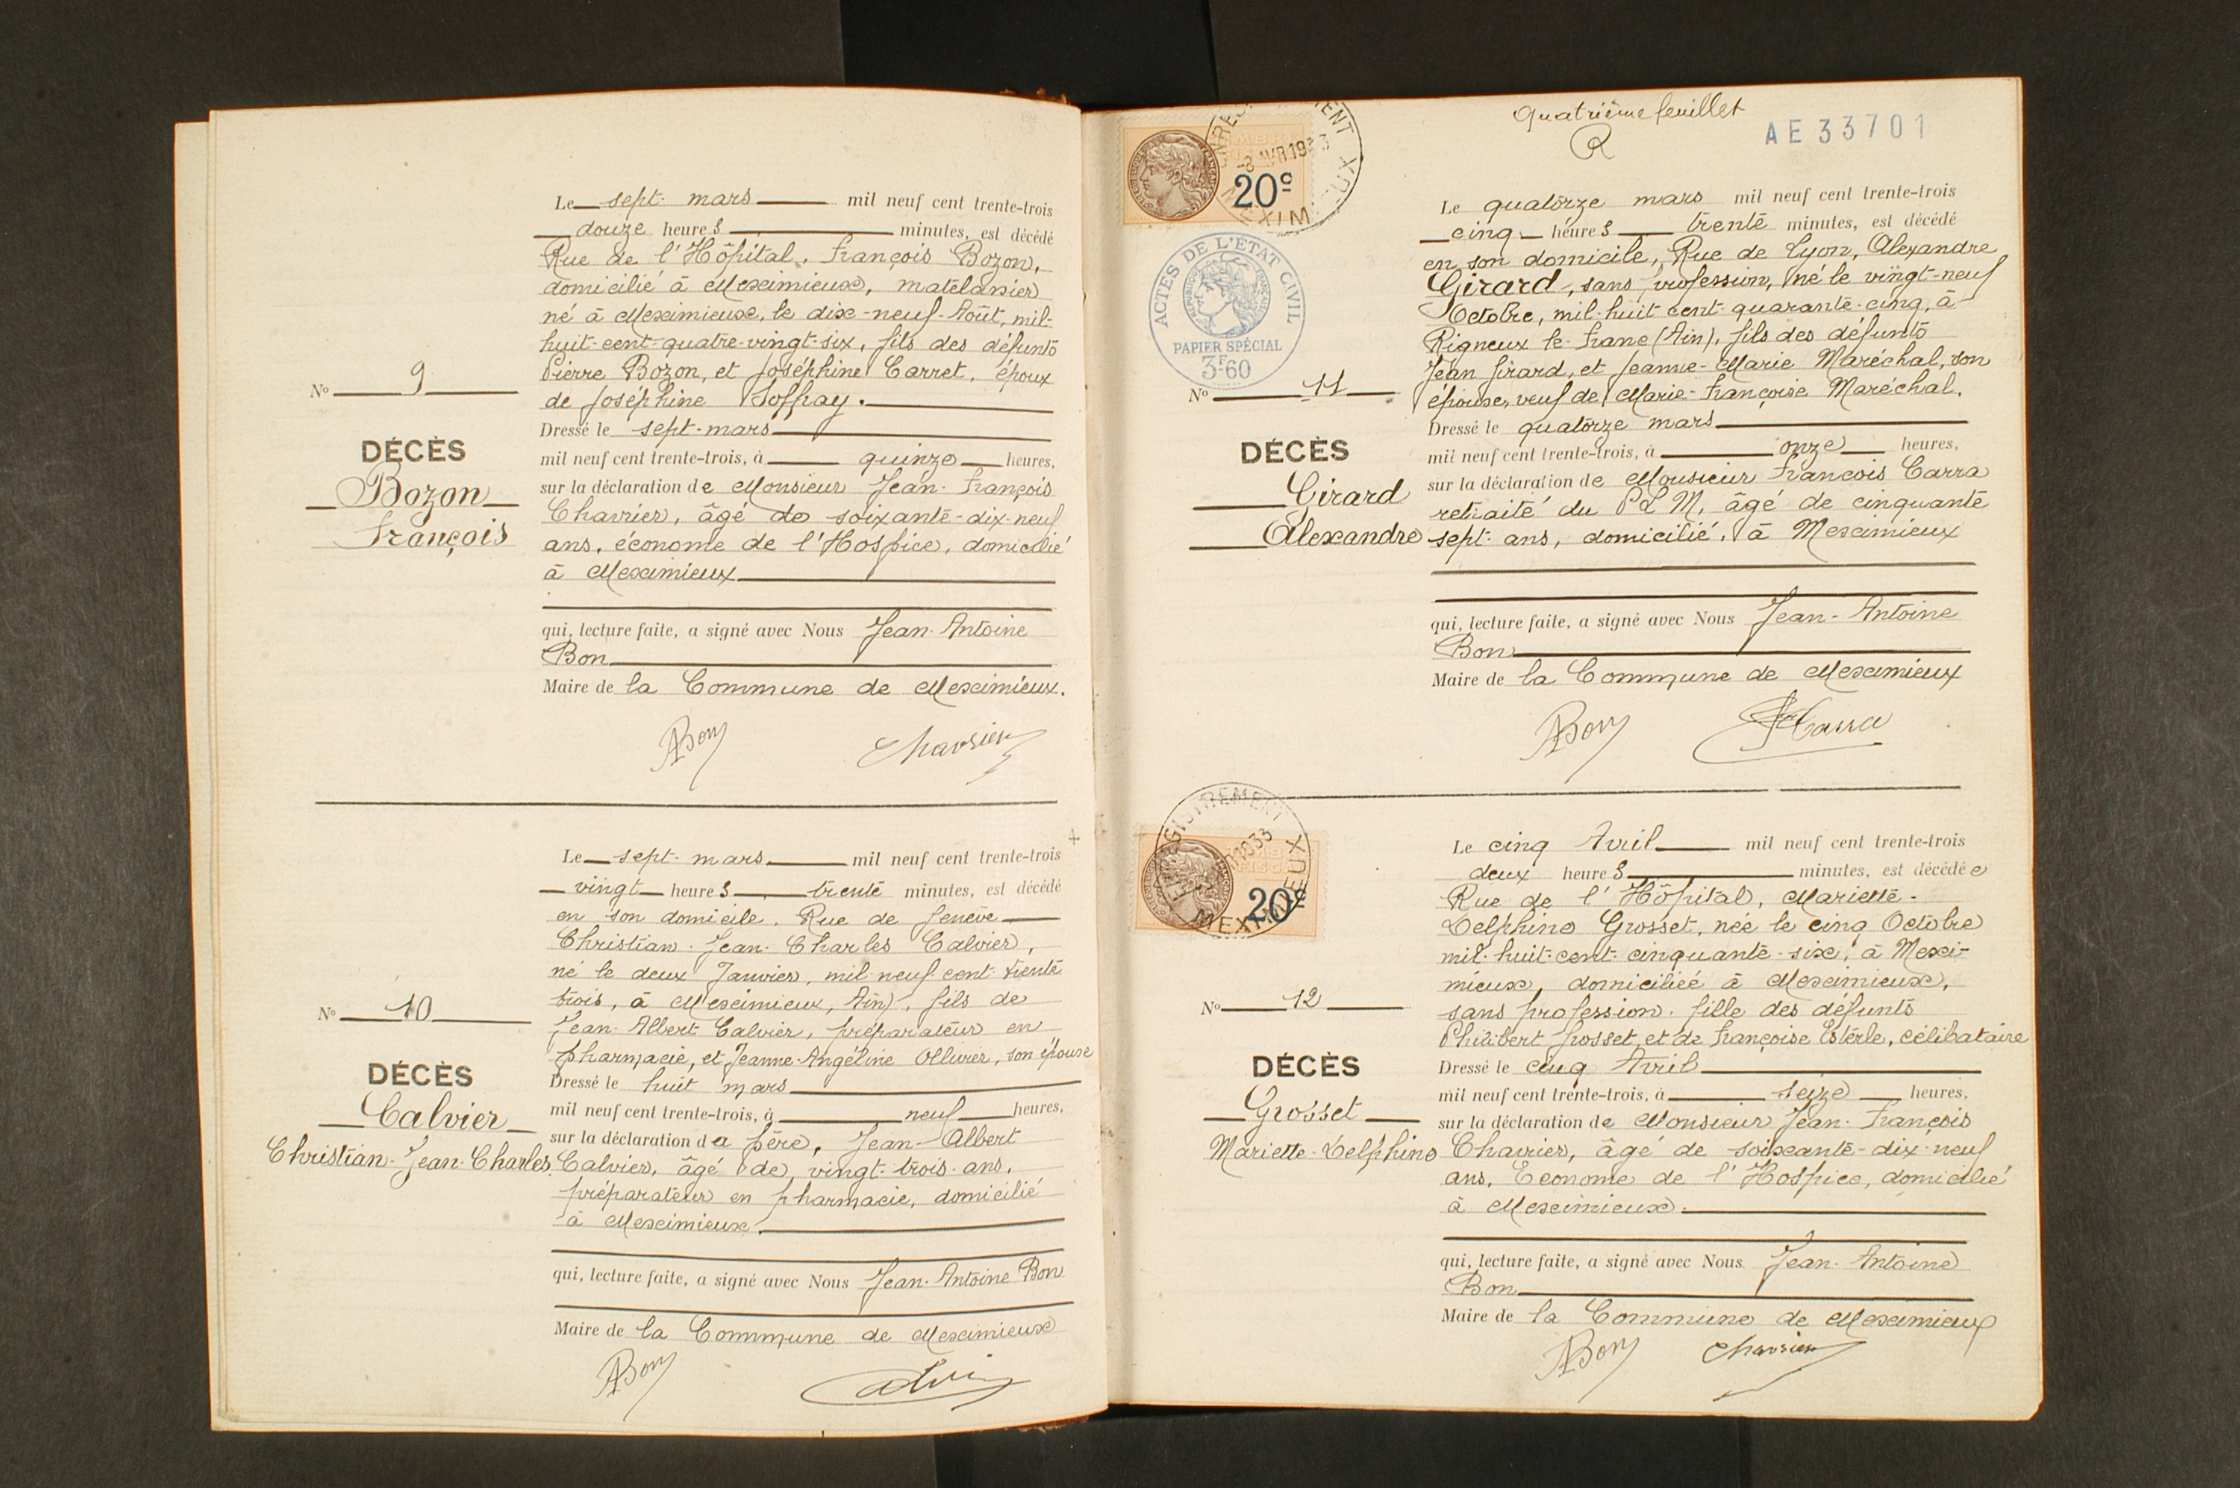 Le sept mars mil neuf cent trente-trois
douze heures minutes, est décédé
Rue de l'Hôpital, François Bozon,
domicilié à Meximieux, matelassier
né à Meximieux, le dix-neuf Août, mil-
huit-cent-quatre-vingt-six, fils des défunts
Pierre Bozon, et Joséphine Carret, époux
de Joséphine Soffray.
No 9
Dressé le sept-mars
DÉCÈS
mil neuf cent trente-trois, à quinze heures,
Bozon
sur la déclaration de Monsieur Jean-François
François
Charrier, âgé de soixante-dix-neuf
ans, économe de l'Hospice, domicilié
à Meximieux
qui, lecture faite, a signé avec Nous Jean-Antoine
Bon
Maire de la Commune de Meximieux.
ABon Charrier
Le sept-mars mil neuf cent trente-trois
vingt heures trente minutes, est décédé
en son domicile, Rue de Genève
Christian-Jean-Charles Calvier,
né le deux Janvier, mil-neuf-cent-trente
trois, à Meximieux, Ain), fils de
Jean-Albert Calvier, préparateur en
pharmacie, et Jeanne-Angéline Ollivier, son épouse
No 10
Dressé le huit mars
DÉCÈS
mil neuf cent trente-trois, à neuf heures,
Calvier
Christian-Jean-Charles
sur la déclaration du père, Jean-Albert
Calvier, âgé de vingt-trois-ans,
préparateur en pharmacie, domicilié
à Meximieux.
qui, lecture faite, a signé avec Nous Jean-Antoine Bon
Maire de la Commune de Meximieux
ABon Calvier
Quatrième feuillet
R
AE 33701
20c
ACTES DE L'ÉTAT CIVIL
PAPIER SPÉCIAL
3F60
Le quatorze mars mil neuf cent trente-trois
cinq heures trente minutes, est décédé
en son domicile, Rue de Lyon, Alexandre
Girard, sans profession, né le vingt-neuf
Octobre, mil-huit-cent-quarante-cinq, à
Rigneux le Franc (Ain), fils des défunts
Jean Girard, et Jeanne-Marie Maréchal, son
épouse, veuf de Marie-Françoise Maréchal.
No 11
Dressé le quatorze mars
DÉCÈS
mil neuf cent trente-trois, à onze heures,
Girard
Alexandre
sur la déclaration de Monsieur François Carra
retraité du P L M, âgé de cinquante
sept-ans, domicilié, à Meximieux
qui, lecture faite, a signé avec Nous Jean-Antoine
Bon
Maire de la Commune de Meximieux
ABon FCarra
ENREGISTREMENT
MEXIMIEUX
20c
Le cinq Avril mil neuf cent trente-trois
deux heures minutes, est décédée
Rue de l'Hôpital, Mariette-
Delphine Grosset, née le cinq Octobre
mil-huit-cent-cinquante-six, à Mexi-
mieux, domiciliée à Meximieux,
sans profession, fille des défunts
Philibert Grosset, et de Françoise Estérle, célibataire
No 12
Dressé le cinq Avril
DÉCÈS
mil neuf cent trente-trois, à seize heures,
Grosset
Mariette-Delphine
sur la déclaration de Monsieur Jean-François
Charrier, âgé de soixante-dix-neuf
ans, Econome de l'Hospice, domicilié
à Meximieux.
qui, lecture faite, a signé avec Nous Jean-Antoine
Bon
Maire de la Commune de Meximieux
ABon Charrier